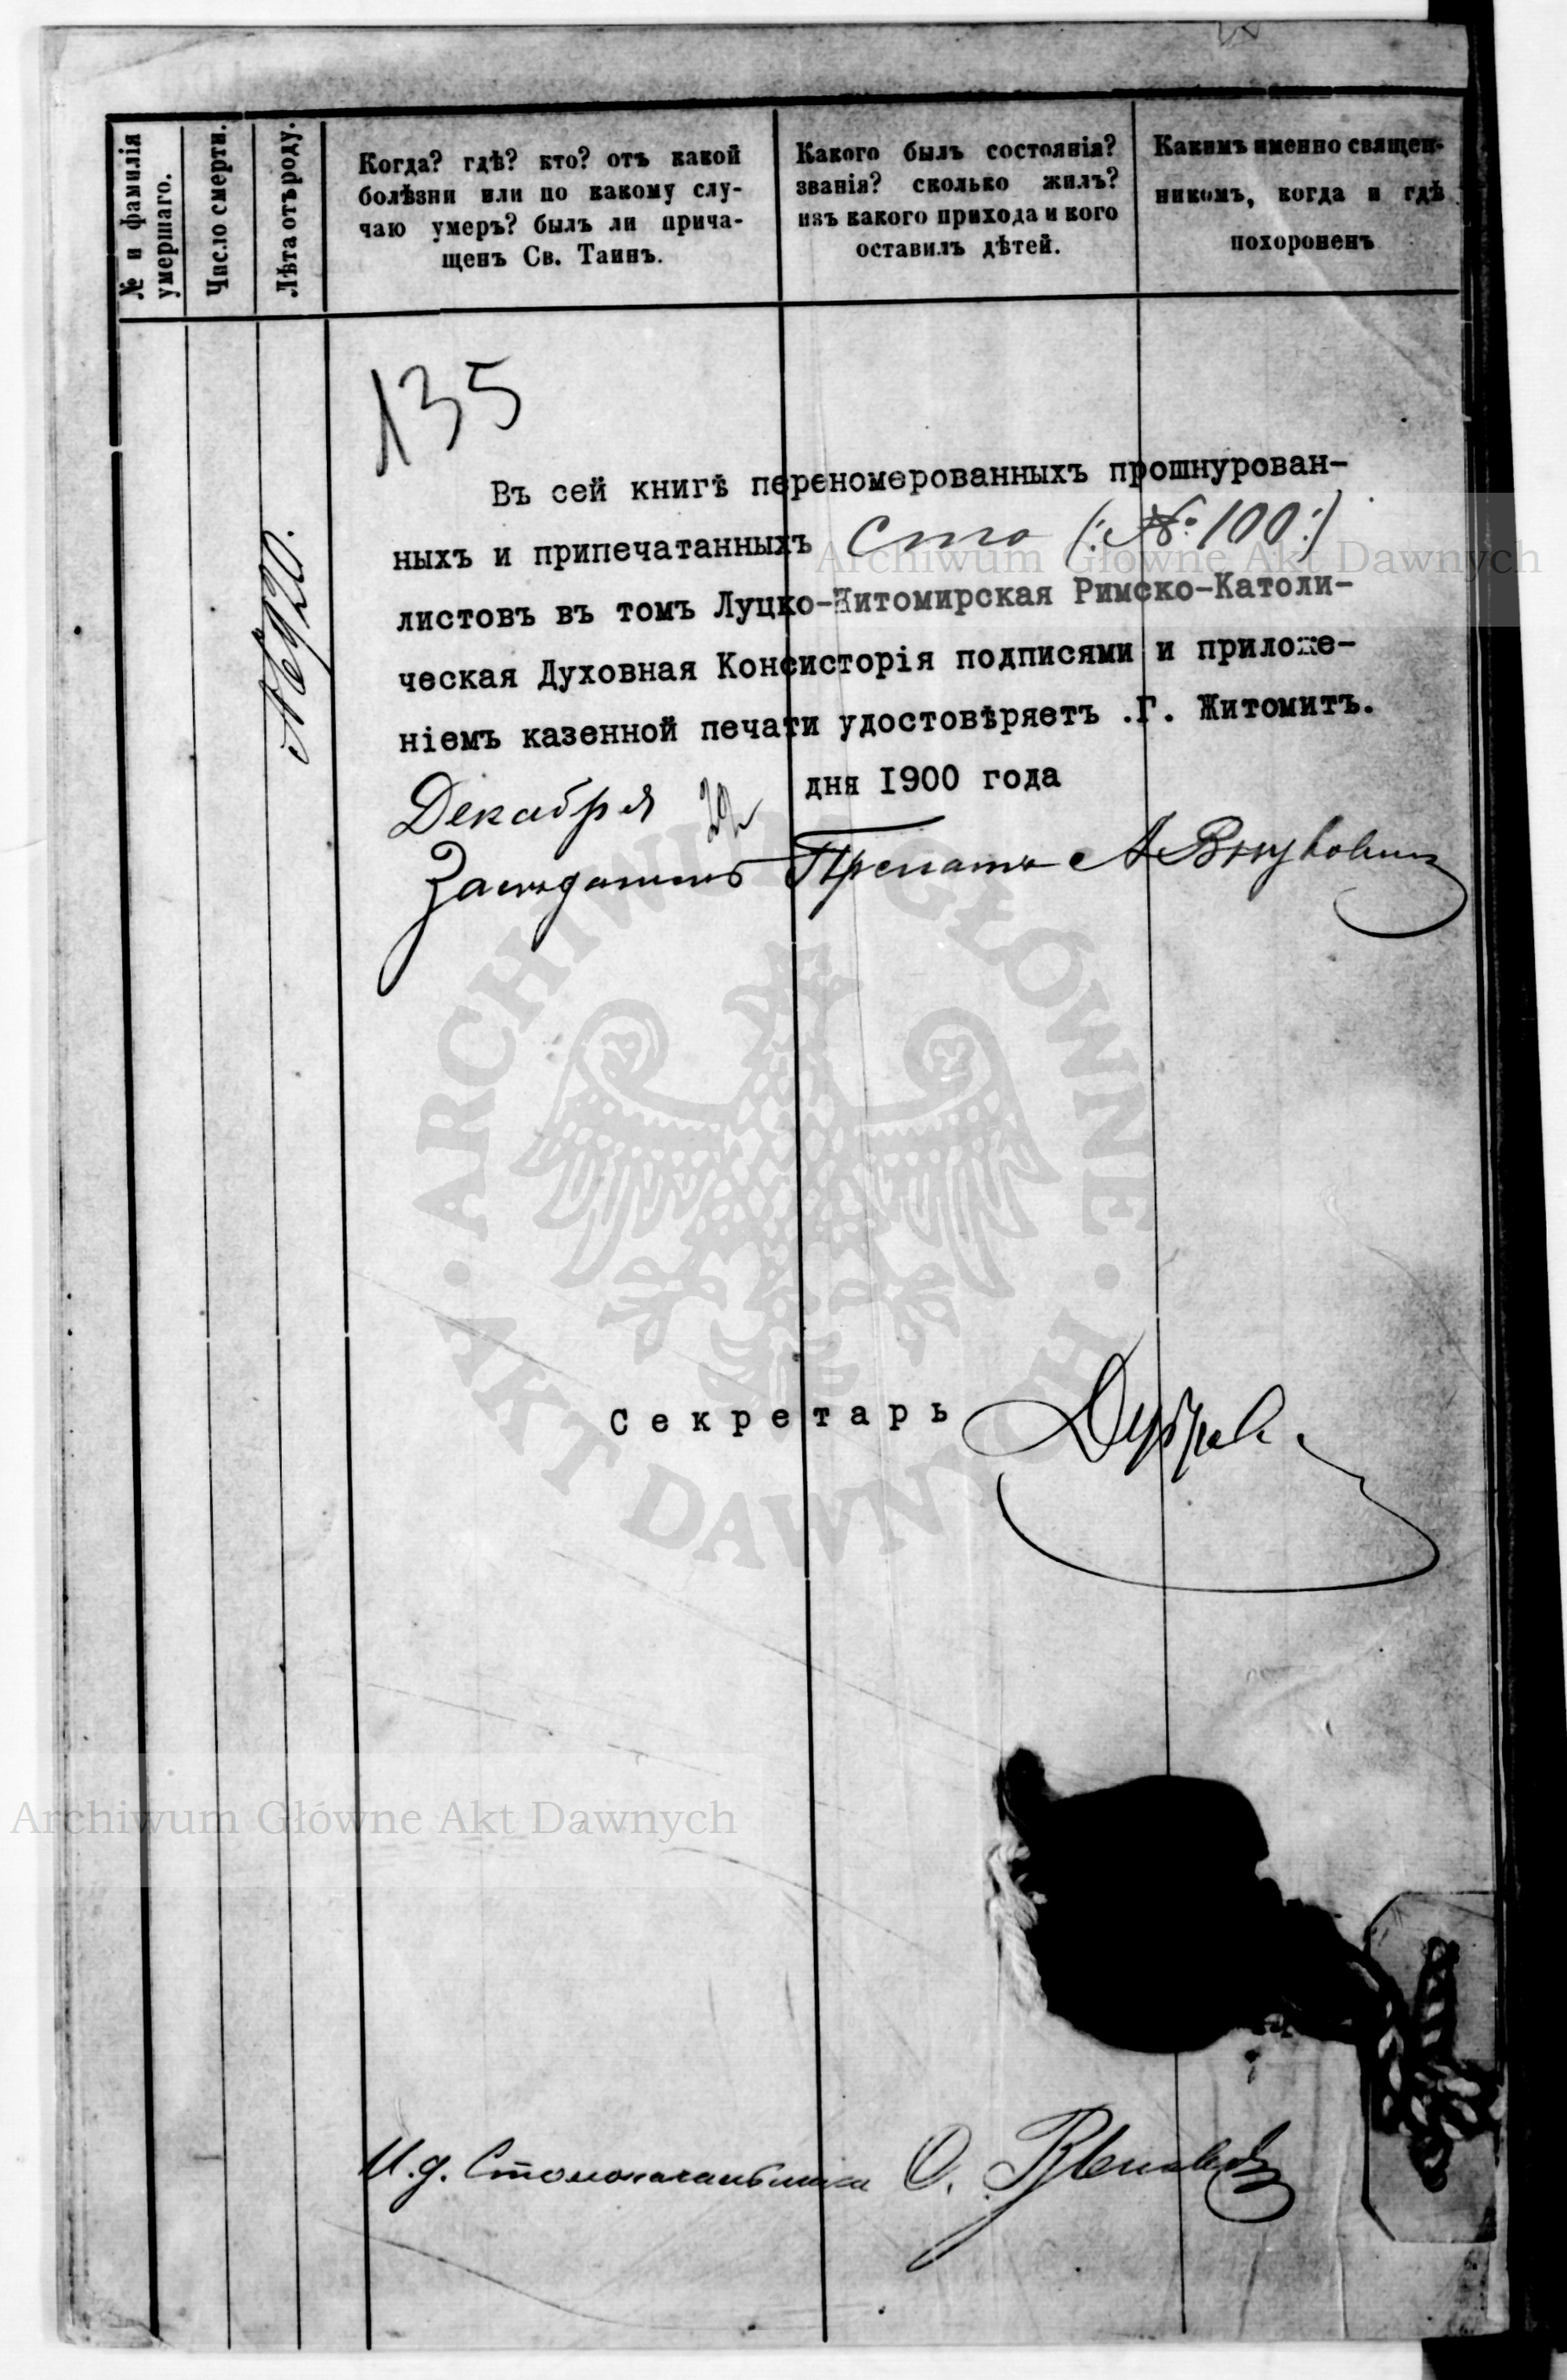 № и фамилія
умершаго.
Число смерти.
Лѣта отъ роду.
Когда? гдѣ? кто? отъ какой
болѣзни или по какому слу-
чаю умеръ? былъ ли прича-
щенъ Св. Таинъ.
Какого былъ состоянія?
званія? сколько жилъ?
изъ какого прихода и кого
оставилъ дѣтей.
Какимъ именно священ-
никомъ, когда и гдѣ
похороненъ
135
Въ сей книгѣ переномерованныхъ прошнурован-
ныхъ и припечатанныхъ Сто (:№ 100:)
листовъ въ томъ Луцко-Житомирская Римско-Католи-
ческая Духовная Консисторія подписями и приложе-
ніемъ казенной печати удостовѣряетъ .Г. Житомитъ.
Декабря дня 1900 года
Засѣдатель Прелатъ А
№ 920.
Секретарь
И.д. Столоначальника О.
Archiwum Główne Akt Dawnych
ARCHIWUM GŁÓWNE
AKT DAWNYCH
Archiwum Główne Akt Dawnych